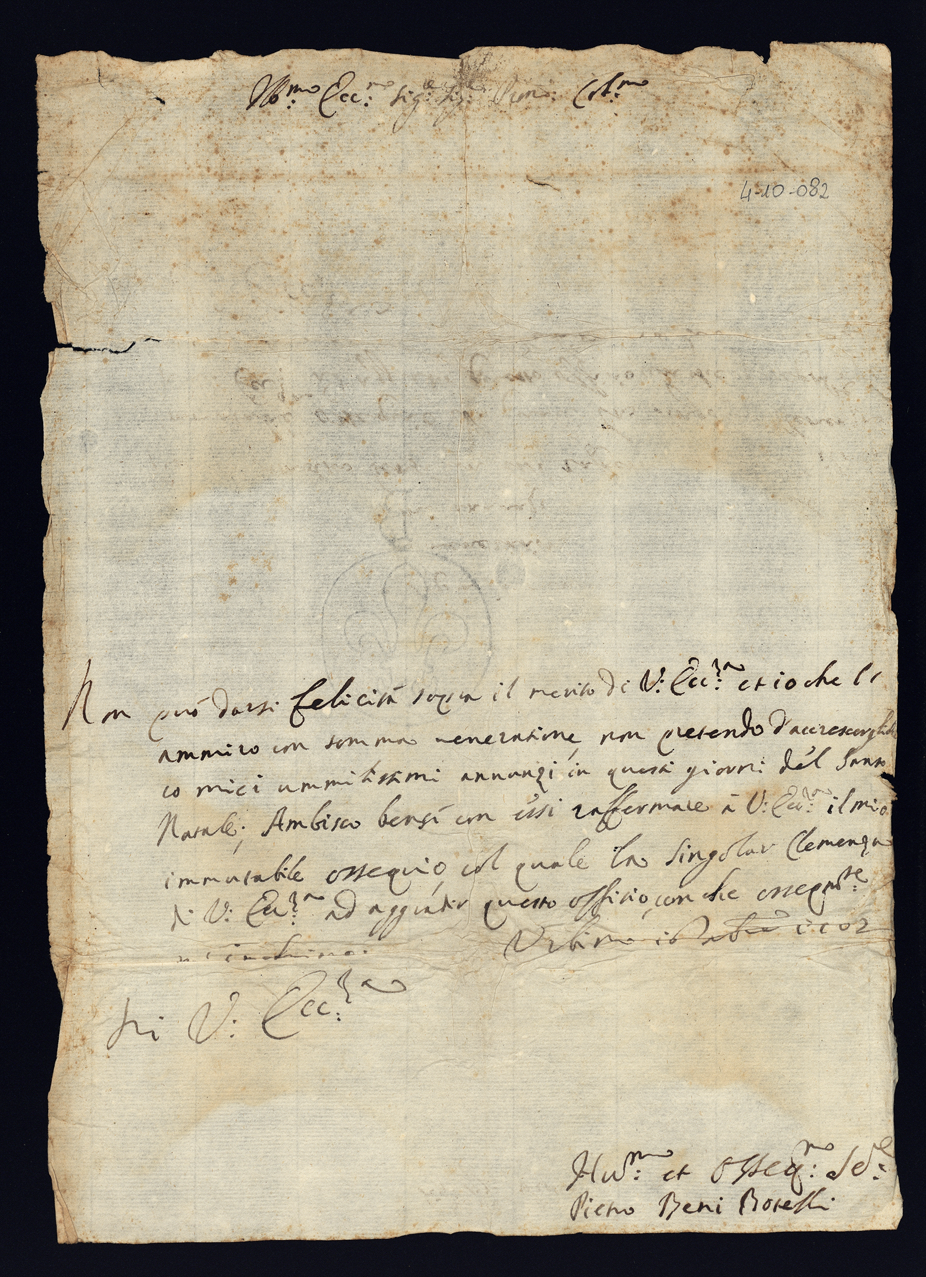 Ill:mo Ecc:mo Sig:re Sig:re Pron: Col:mo
4-10-082
Non può darsi felicità sopra il merito di V: Ecc:za et io che l'
ammiro con somma veneratione, non pretendo d'accrescergliela
co miei ummilissimi annunzi, in questi giorni del Santo
Natale; Ambisco bensì con essi raffermare à V: Ecc:za il mio
immutabile ossequio, col quale la singolar Clemenza
di V: Ecc:za ad aggradir questo offitio, con che osseq:te
m'inchino: Urbino
Di V: Ecc:za
Hu:mo et osseq:mo Se:e
Pietro Beni Borelli